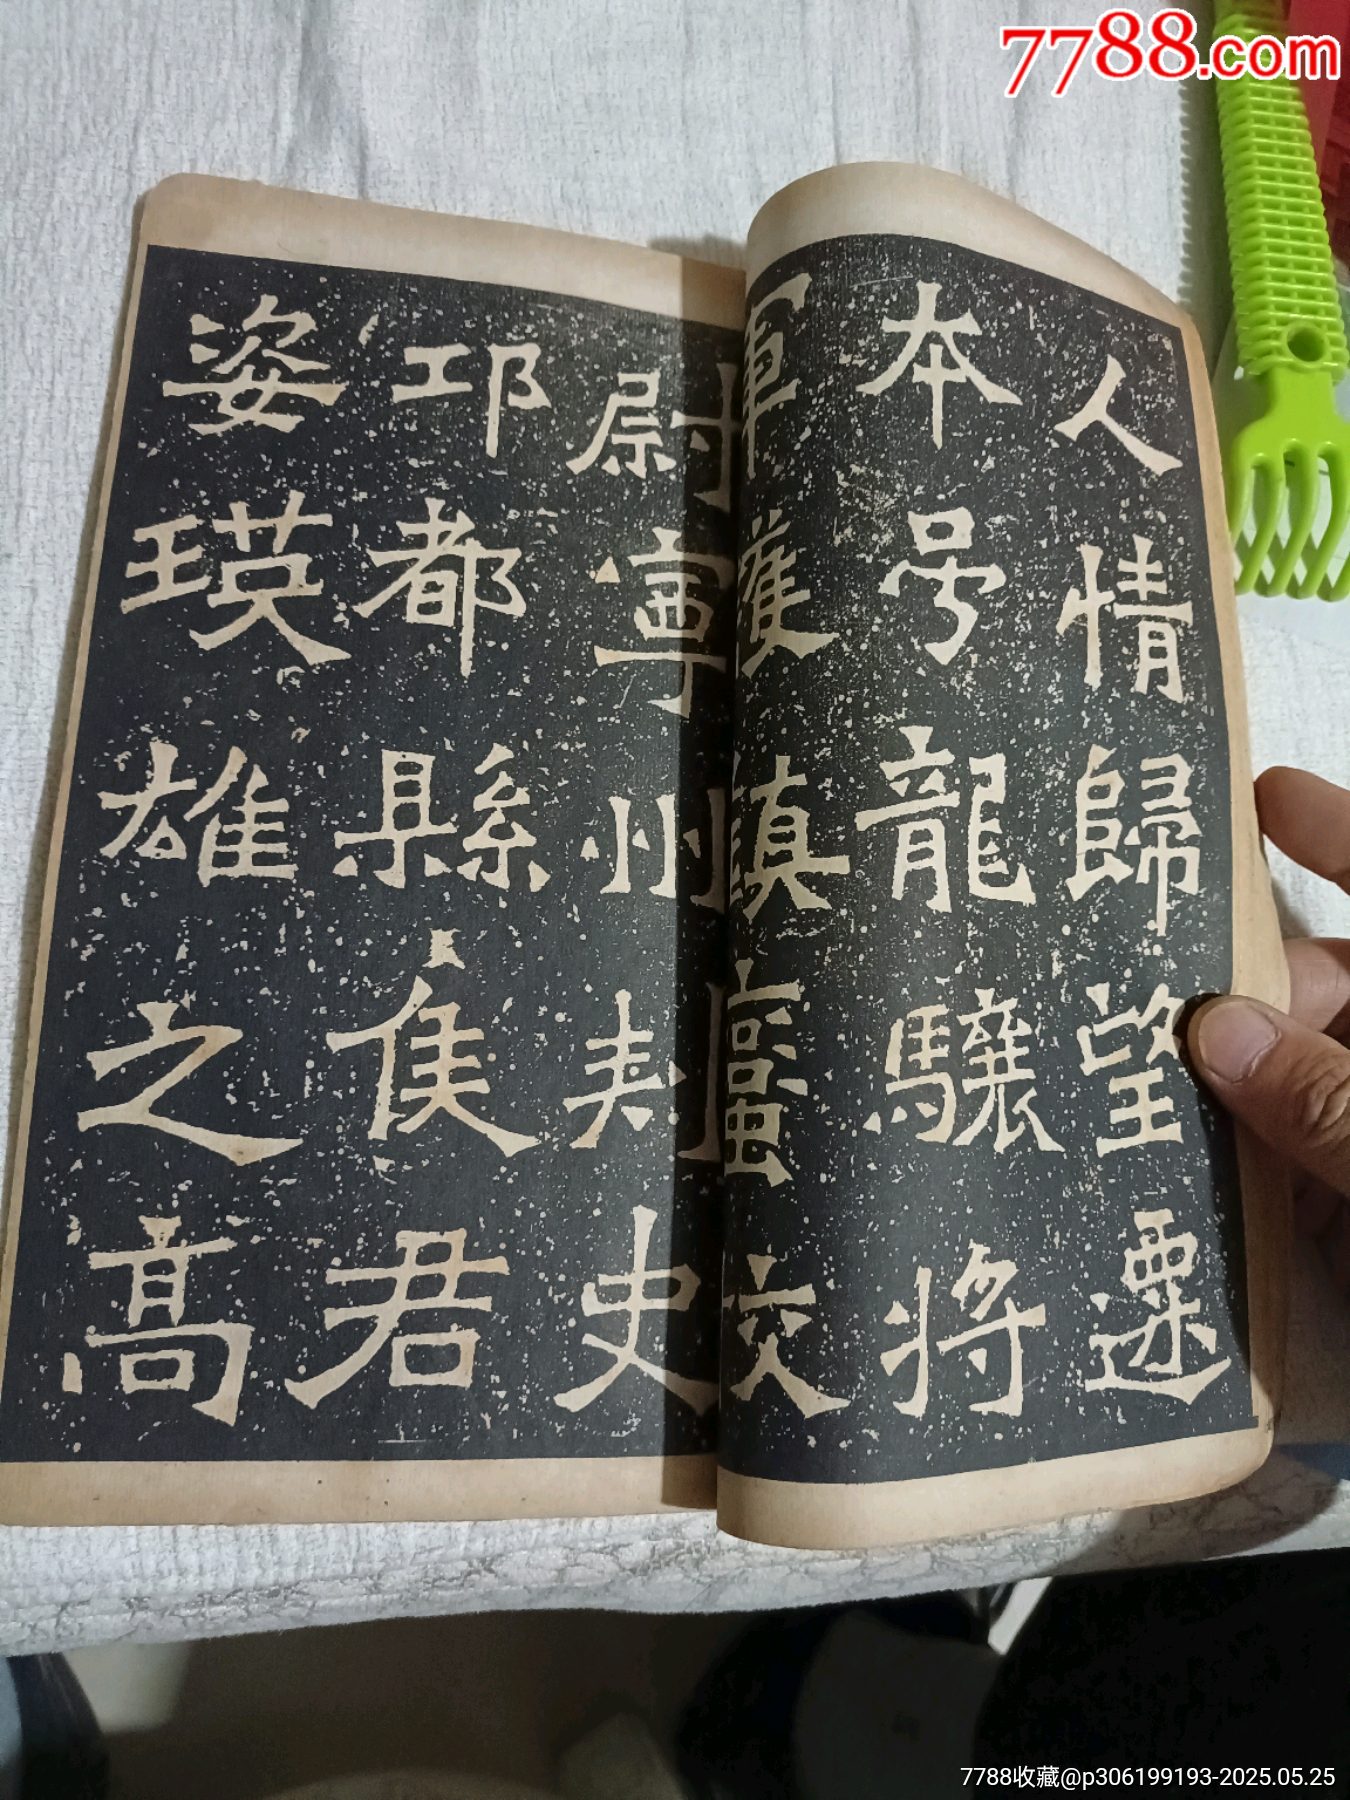 7788.com
人情歸望遷
本号龍驤将
軍護鎮蠻校
尉寧州刾史
邛都縣侯君
姿瑛雄之高
7788收藏@p306199193-2025.05.25